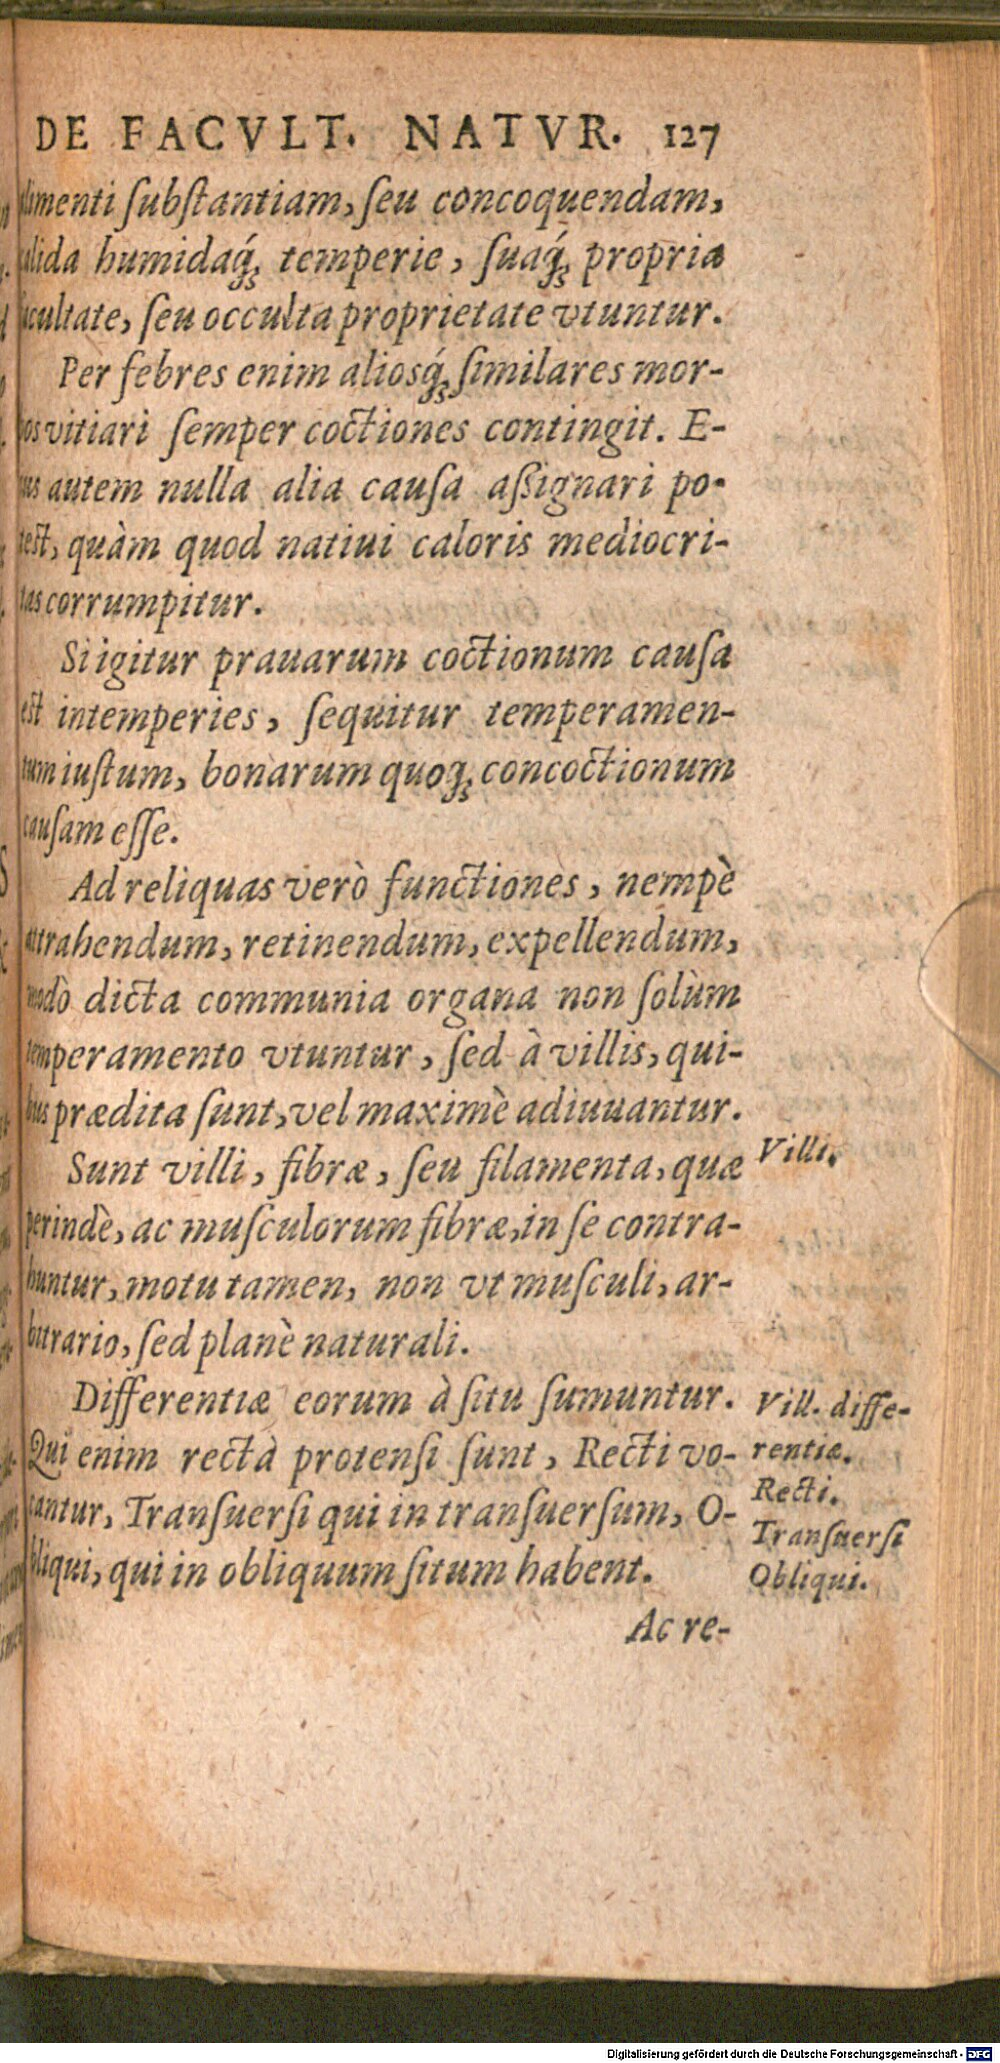 DE FACVLT. NATVR. 127
alimenti ſubſtantiam, ſeu concoquendam,
calida humidaq́; temperie, ſuaq́; propria
facultate, ſeu occulta proprietate vtuntur.
Per febres enim alioſq́; ſimilares mor-
bos vitiari ſemper coctiones contingit. E-
ius autem nulla alia cauſa aſsignari po-
test, quàm quod natiui caloris mediocri-
tas corrumpitur.
Si igitur prauarum coctionum cauſa
est intemperies, ſequitur temperamen-
tum iuſtum, bonarum quoq; concoctionum
cauſam eſſe.
Ad reliquas verò functiones, nempè
attrahendum, retinendum, expellendum,
modò dicta communia organa non ſolùm
temperamento vtuntur, ſed à villis, qui-
bus prædita ſunt, vel maximè adiuuantur.
Sunt villi, fibræ, ſeu filamenta, quæ
Villi.
perindè, ac muſculorum fibræ, in ſe contra-
huntur, motu tamen, non vt muſculi, ar-
bitrario, ſed planè naturali.
Differentiæ eorum à ſitu ſumuntur.
Vill. diffe-
Qui enim rectà protenſi ſunt, Recti vo-
rentiæ.
cantur, Tranſuerſi qui in tranſuerſum, O-
Recti.
Tranſuerſi
bliqui, qui in obliquum ſitum habent.
Obliqui.
Ac re-
Digitalisierung gefördert durch die Deutsche Forschungsgemeinschaft - DFG